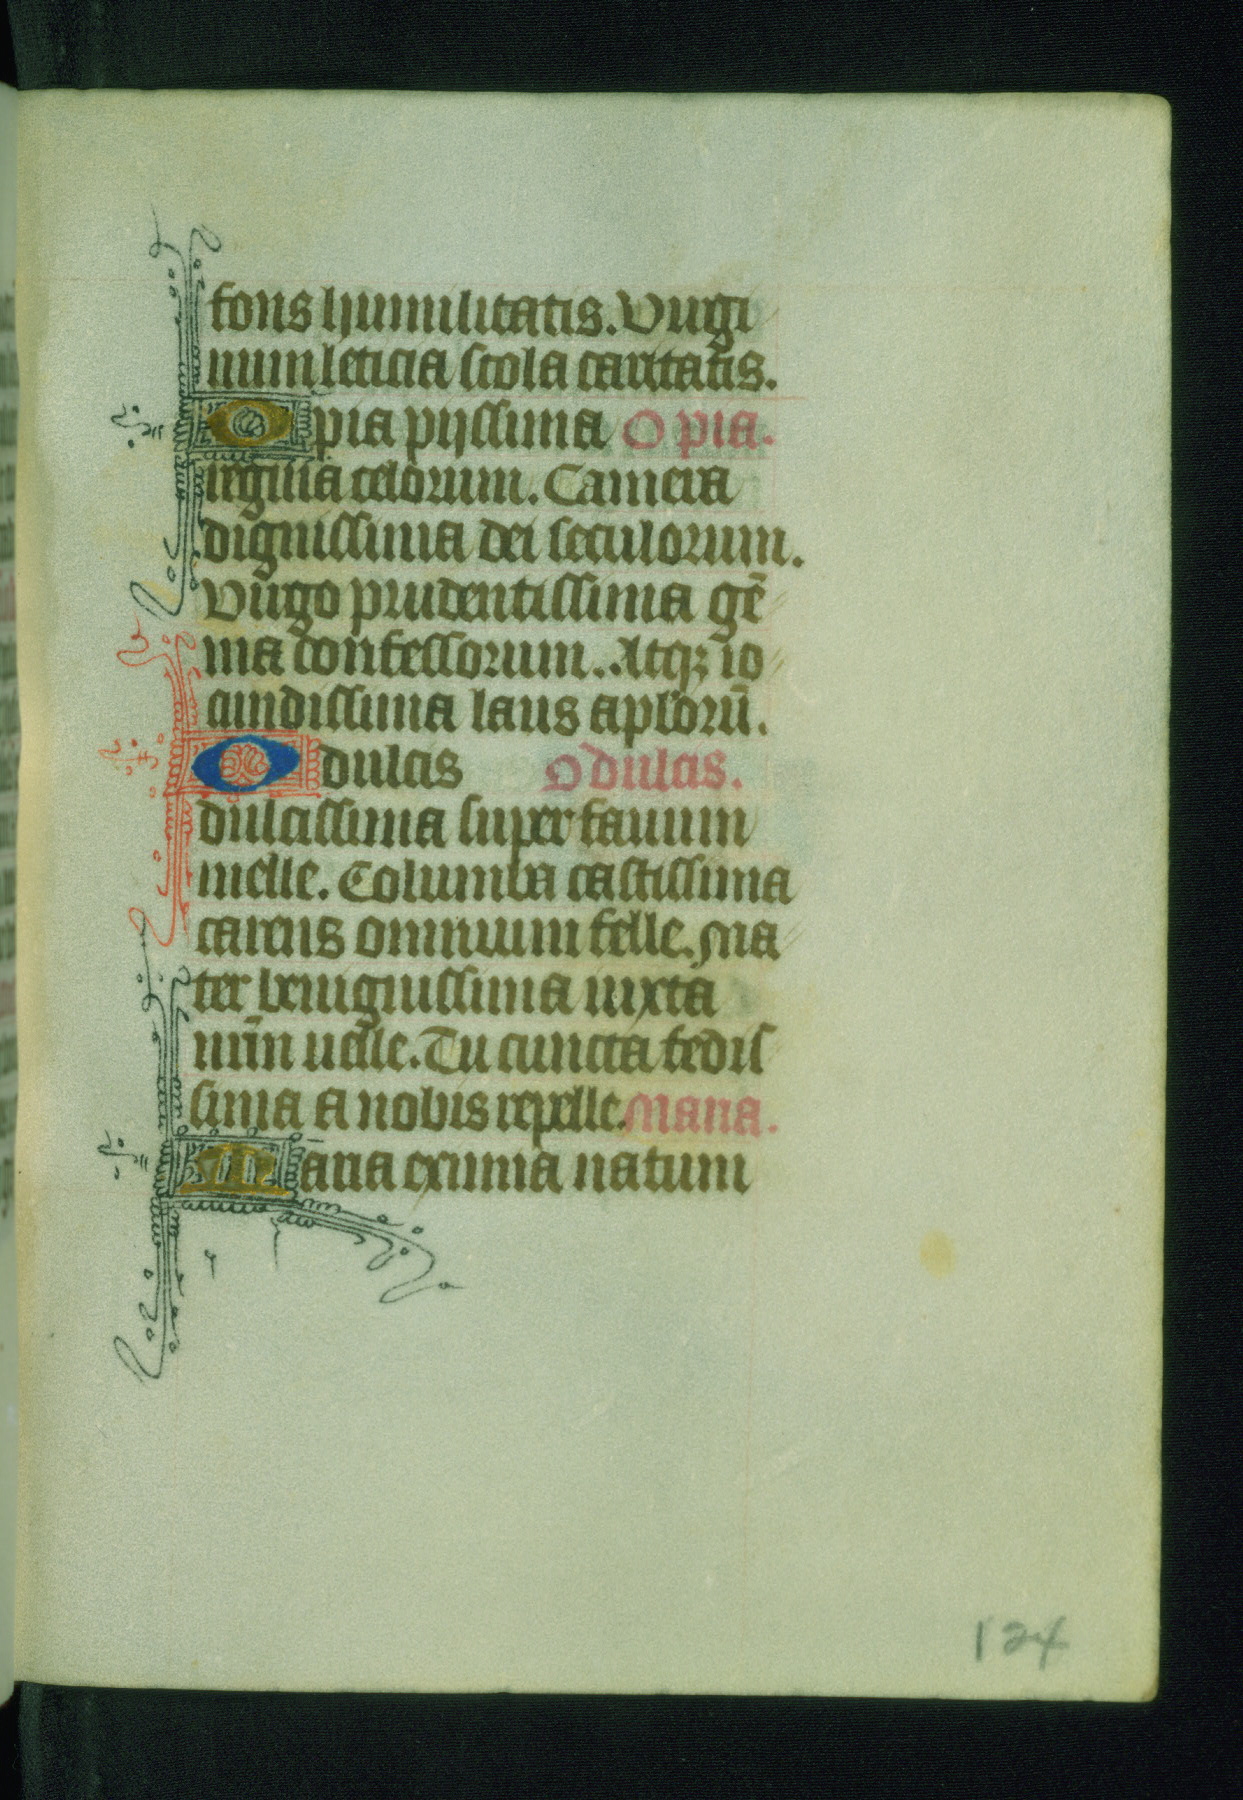 fons humilitatis. Virgi
num leticia scola caritatis.
O pia pijssima O pia.
regina celorum. Camera
dignissima dei seculorum.
Virgo prudentissima gē
ma confessorum. Atqꝫ io
cundissima laus aplorū.
O dulcis O dulcis.
dulcissima super fauum
melle. Columba castissima
carens omnium felle. Ma
ter benignissima iuxta
nr̄m uelle. Tu cuncta fedis
sima a nobis repelle. Maria.
Maria eximia natum
124